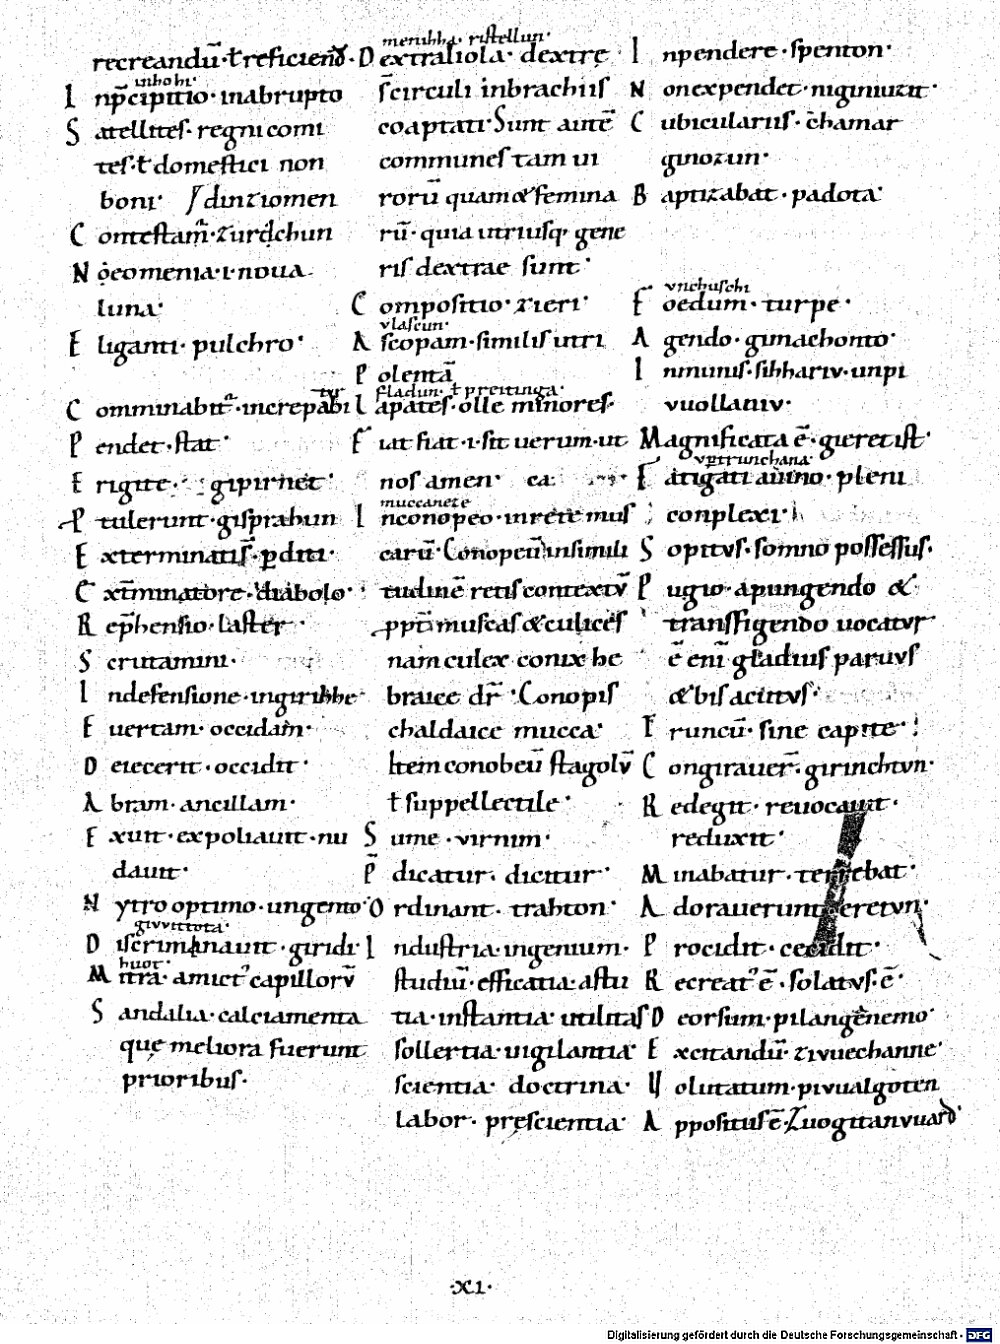 recreandū· ł reficiend·
inhohi·
I np̄cipitio· inabrupto
S atellites· regni comi
tes· ł domestici non
boni· dinziomen
C ontestam̄· zurdchun
N eomenia· i· noua
luna·
E liganti· pulchro·
tur
C omminabit᷒· increpabi
P endet· stat·
E rigite· gipirnet·
P tulerunt· gisprahun
E xterminatis· ꝑditi·
E xt̄minatore· diabolo·
R ep̄hensio· laster·
S crutamini·
I ndefensione· ingiribbe
E uertam· occidam·
D eiecerit· occidit·
A bram· ancillam·
E xuit· expoliauit· nu
dauit·
N ytro optimo· ungento·
giuvittota·
D iscriminauit· giridi·
huot·
M itra· amict᷒ capillorū
S andalia· calciamenta
quę meliora fuerunt
prioribus·
menihha· ristellun·
D extraliola· dextrę
s̄ circuli inbrachiis
coaptati· Sunt autē
communes tam ui
rorū quam & femina
rū· quia utriusq· gene
ris dextrae sunt·
C ompositio· zieri·
vlascun·
A scopam· similis utri
P olentā
fladun· ł preitinga·
L apates· olle minores·
F iat fiat· i· sit uerum· ut
nos amen·
muccanete
I nconopeo· inrete mus
carū· Conopeū insimili
tudinē retis contextū
ꝓpt̄ muscas & culices
nam culex conix he
braice dr̄· Conopis
chaldaice mucca·
Item conobeū stagolū
ł suppellectile·
S ume· virnim·
P̄ dicatur· dicitur·
O rdinant· trahton·
I ndustria· ingenium·
studiū· efficatia· astu
tia· instantia· utilitas
sollertia· uigilantia·
scientia· doctrina·
labor· pręscientia·
I npendere· spenton·
N on expendet· niginiuzit·
C ubiculariis· chamar
ginozun·
B aptizabat· padota·
vnchuschi
F oedum· turpe·
A gendo· gimachonto·
I nmunis· sihhariv· unpi
vuollaniv·
M agnificata ē· gieret ist·
F atigati animo· pleni
conplexi·
S opitvs· somno possessus·
P ugio· apungendo &
transfigendo vocatvr
ē eni gladius paruvs
& bis acutvs·
T runcū· sine capite·
C ongirauer̄· girinchtvn·
R edegit· reuocauit·
reduxit·
M inabatur· terrebat·
A dorauerunt· eretvn·
P rocidit· cecidit·
R ecreat᷒ ē· solatvs· ē·
D eorsum· pilangenemo·
E xcitandū· zivuechanne·
U olutatum· pivualgoten
A ppositus ē· Zuogitanvuard·
·XI·
Digitalisierung gefördert durch die Deutsche Forschungsgemeinschaft · DFG